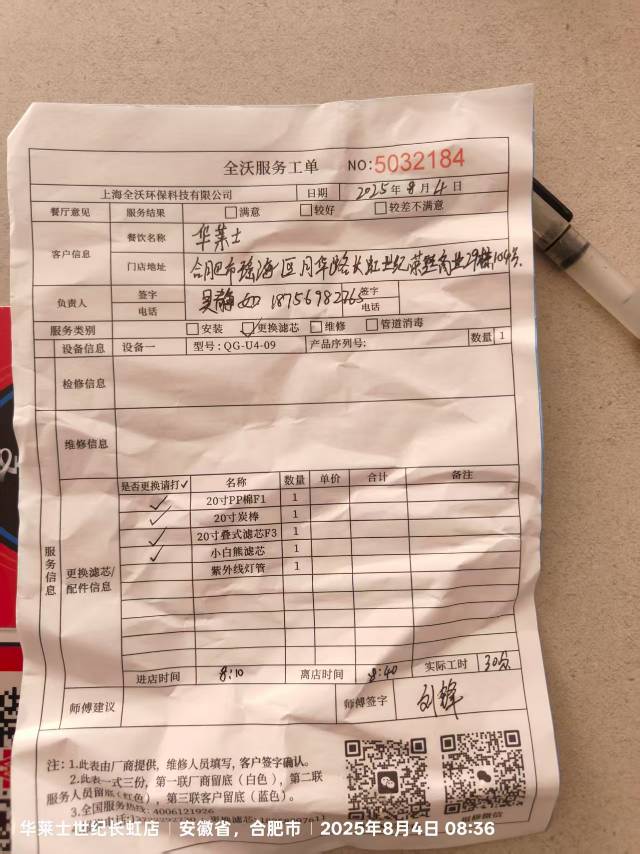 全沃服务工单 NO:5032184
上海全沃环保科技有限公司 日期 2025年8月4日
餐厅意见 服务结果 □满意 □较好 □较差不满意
客户信息 餐饮名称 华莱士
门店地址 合肥市瑶海区月华路长虹世纪荣廷商业29幢104号
负责人 签字 电话 吴静如 18756982765 签字 电话
服务类别 □安装 ☑更换滤芯 □维修 □管道消毒
设备信息 设备一 型号:QG-U4-09 产品序列号; 数量 1
检修信息
维修信息
服务信息
更换滤芯/配件信息
是否更换请打✓ 名称 数量 单价 合计 备注
✓ 20寸PP棉F1 1
✓ 20寸炭棒 1
✓ 20寸叠式滤芯F3 1
✓ 小白熊滤芯 1
紫外线灯管 1
进店时间 8:10 离店时间 8:40 实际工时 30分
师傅建议 师傅签字 刘锋
注:1.此表由厂商提供,维修人员填写,客户签字确认。
2.此表一式三份,第一联厂商留底(白色),第二联
服务人员留底(红色),第三联客户留底(蓝色)。
3.全国服务热线:4006121926
华莱士世纪长虹店 安徽省,合肥市 2025年8月4日 08:36